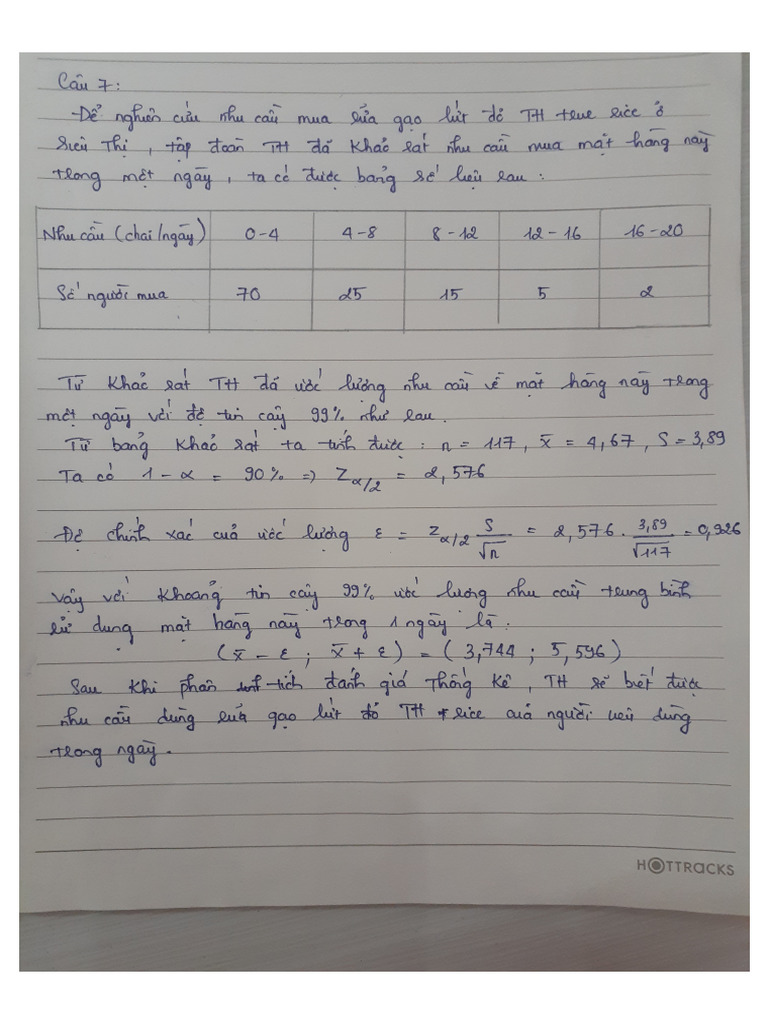 Câu 7:
Để nghiên cứu nhu cầu mua sữa gạo lứt đỏ TH true rice ở
siêu thị, tập đoàn TH đã khảo sát nhu cầu mua mặt hàng này
trong một ngày, ta có được bảng số liệu sau:
Nhu cầu (chai/ngày) 0-4 4-8 8-12 12-16 16-20
Số người mua 70 25 15 5 2
Từ khảo sát TH đã ước lượng nhu cầu về mặt hàng này trong
một ngày với độ tin cậy 99% như sau.
Từ bảng khảo sát ta tính được: n = 117, x̄ = 4,67, S = 3,89
Ta có 1 - α = 90% => Z_α/2 = 2,576
Độ chính xác của ước lượng ε = Z_α/2 S/√n = 2,576 . 3,89/√117 = 0,926
Vậy với khoảng tin cậy 99% ước lượng nhu cầu trung bình
sử dụng mặt hàng này trong 1 ngày là:
(x̄ - ε ; x̄ + ε) = (3,744 ; 5,596)
Sau khi phân tích đánh giá thống kê, TH sẽ biết được
nhu cầu dùng sữa gạo lứt đỏ TH rice của người tiêu dùng
trong ngày.
HOTTRACKS